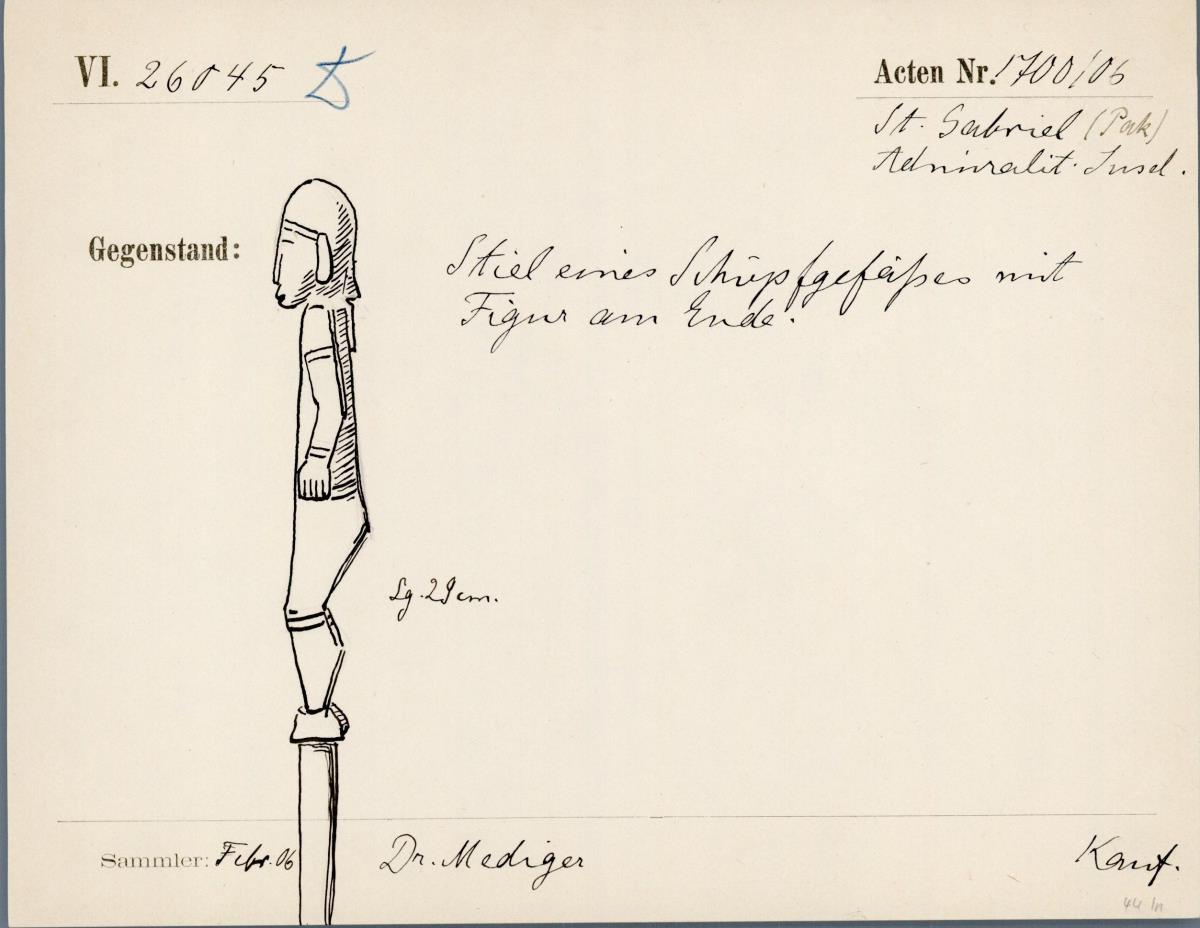 VI. 26045
Acten Nr. 1700/06
St. Gabriel (Pak)
Admiralit. Insel.
Gegenstand:
Stiel eines Schöpfgefäßes mit
Figur am Ende.
Lg. 29 cm.
Sammler: Febr. 06 Dr. Mediger Kauf.